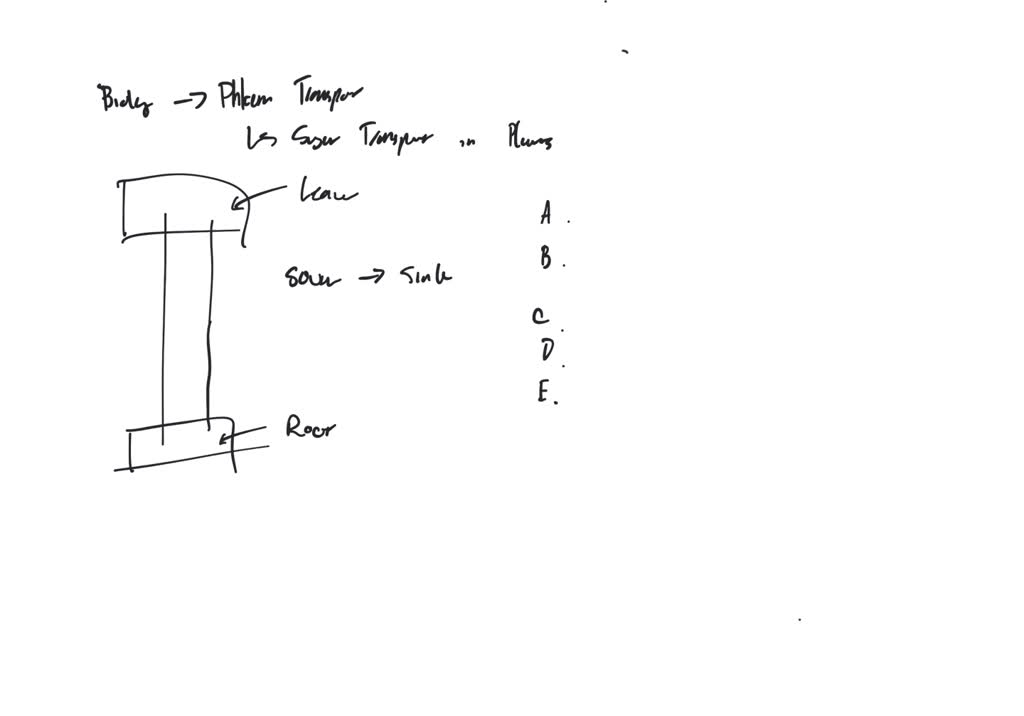 Biology → Phloem Transport
↳ Sugar Transport in Plants
Leaf
A.
B.
Source → Sink
C.
D.
E.
Root